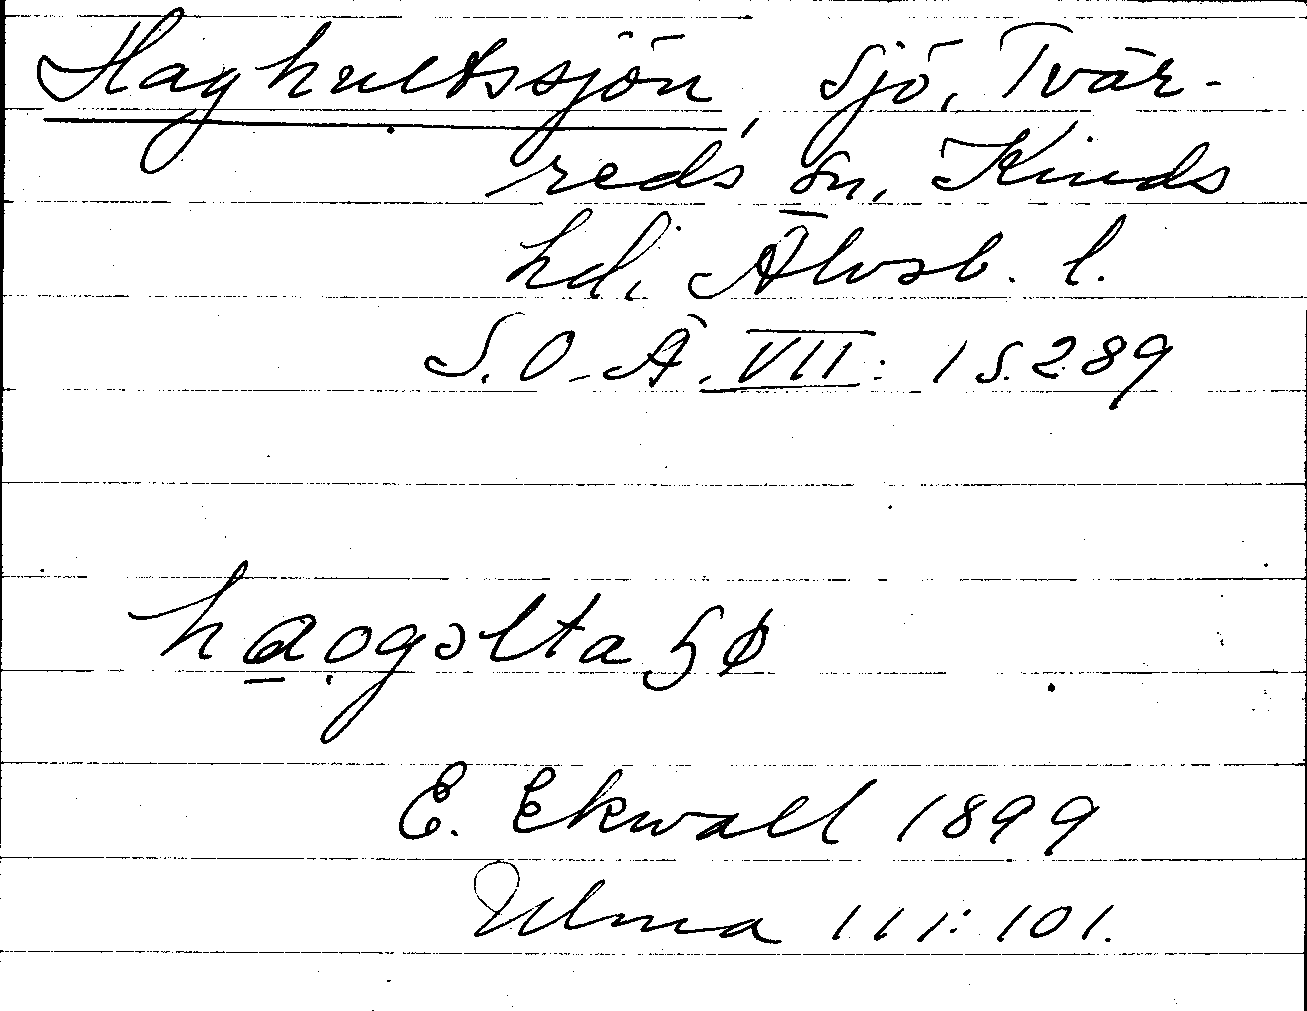 Haghultssjön, sjö, Tvär-
reds sn, Kinds
hd, Älvsb. l.
S.O.Ä. VII: 1 s. 289
ha̲o̩gəlta ɧø
E. Ekwall 1899
Ulma 111:101.